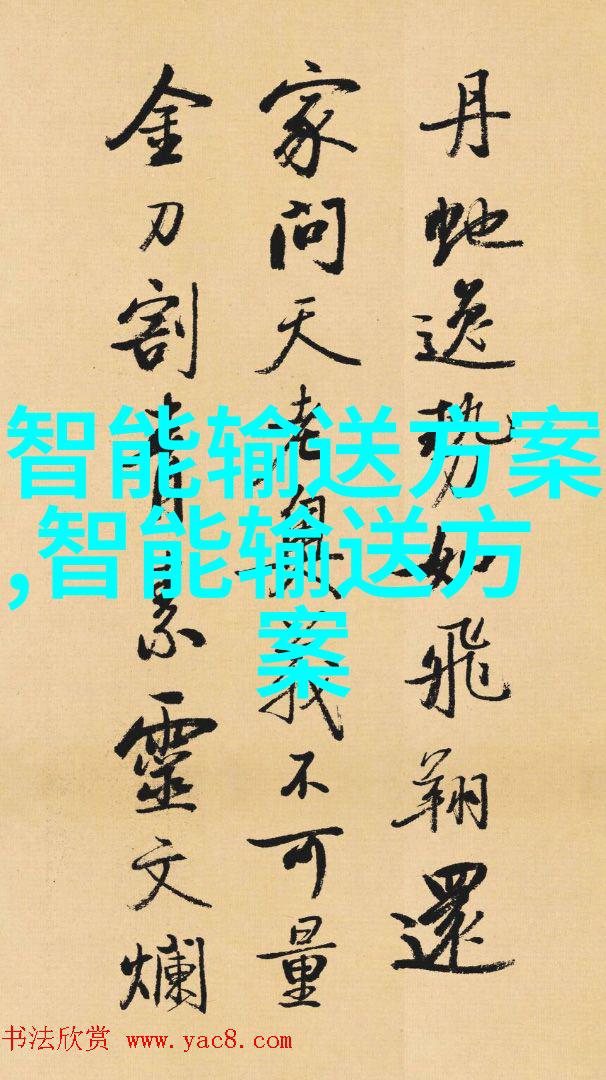 丹虵逸勢如飛翔還
家問天老奧義不可量
金刀割青素靈文爛
智能输送方案
,智能输送方
案
书法欣赏 www.yac8.com